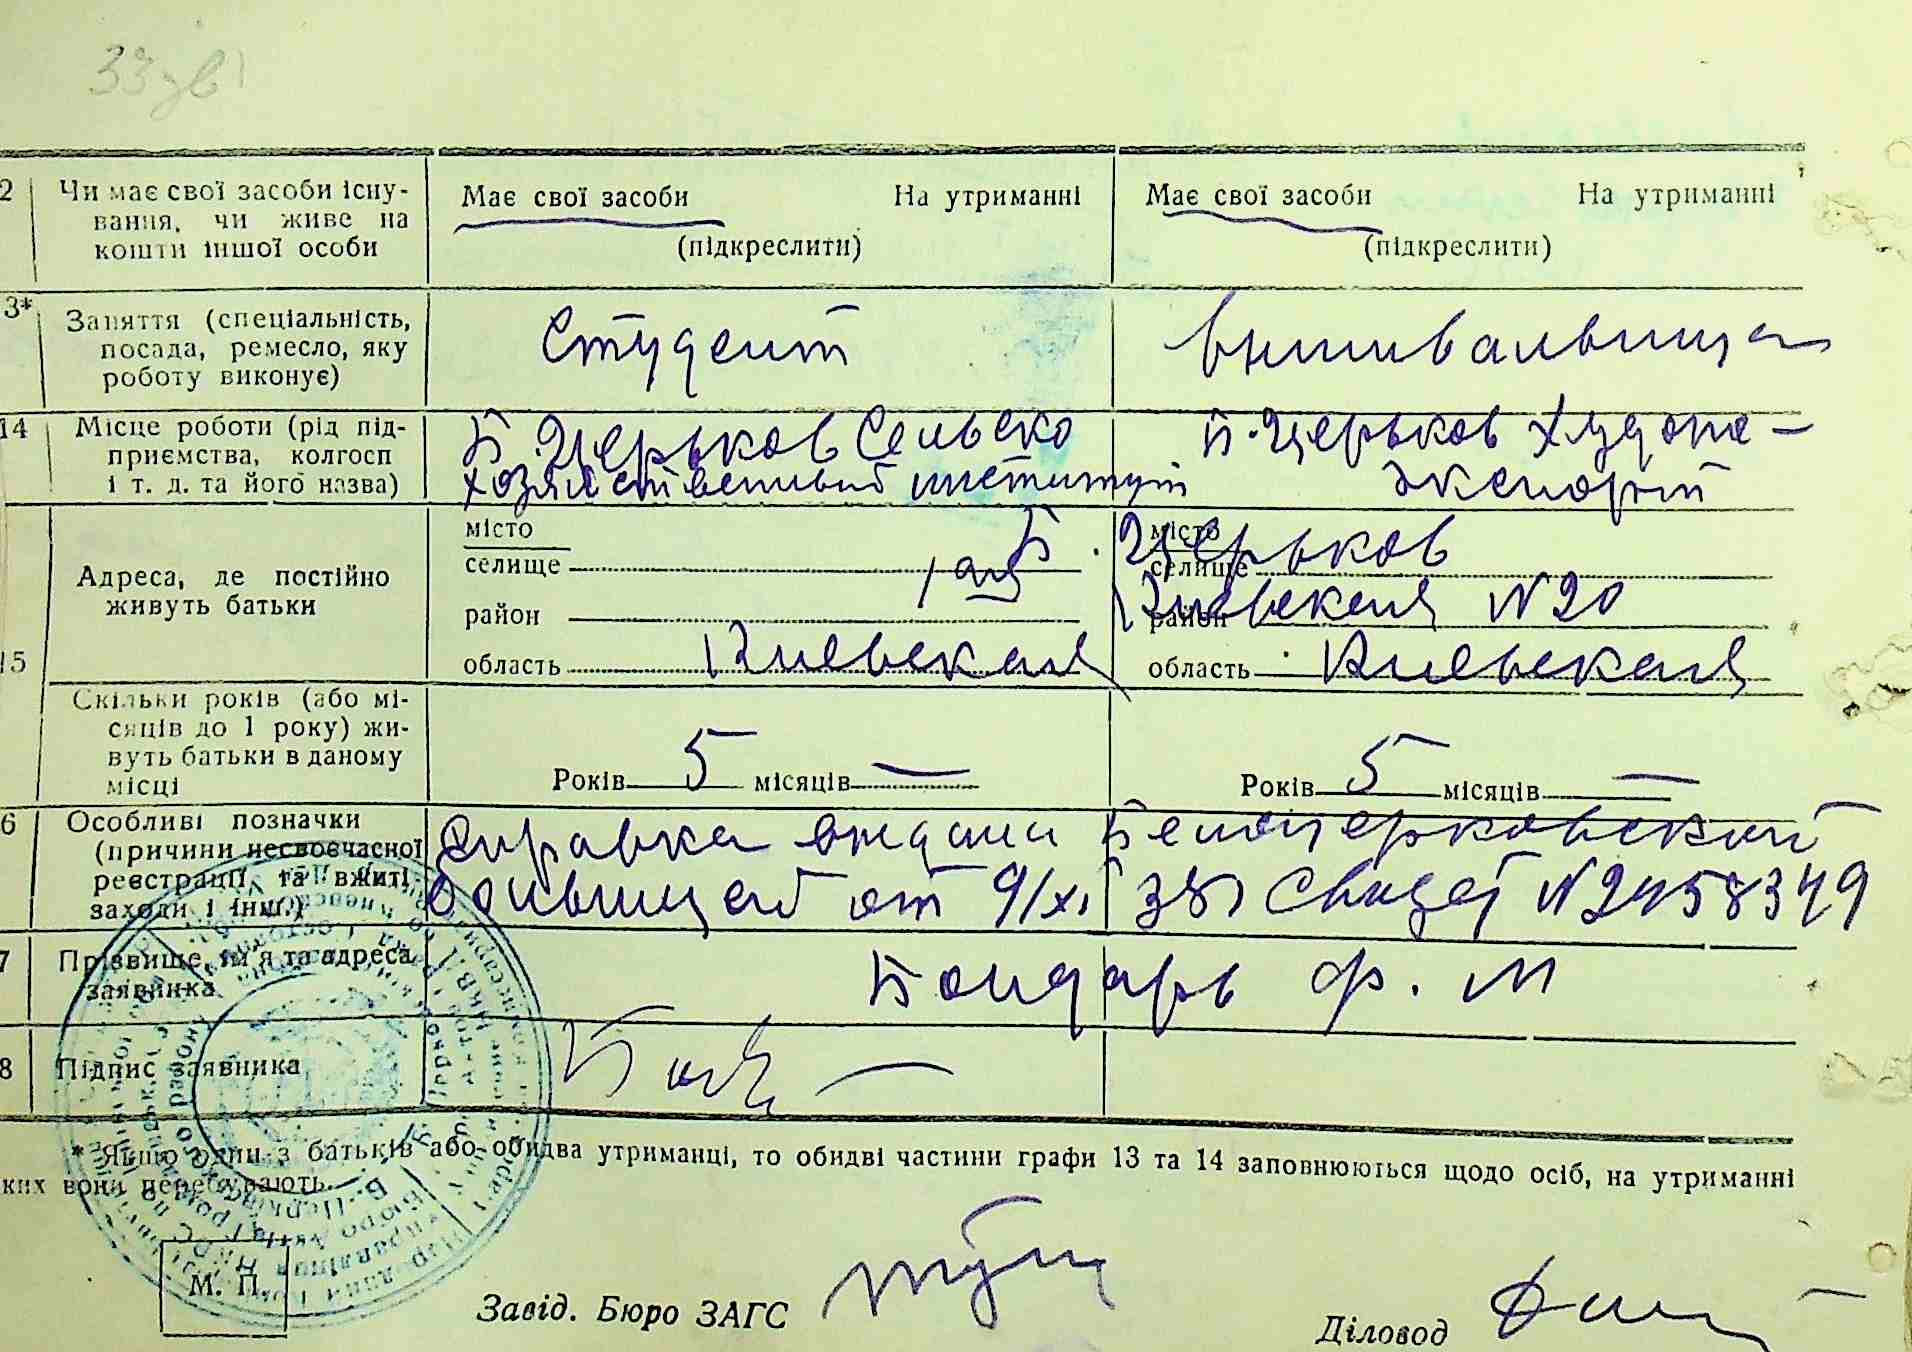 33 зв
2 Чи має свої засоби існу- Має свої засоби На утриманні Має свої засоби На утриманні
вання, чи живе на
кошти іншої особи (підкреслити) (підкреслити)
3* Заняття (спеціальність, Студент Вишивальница
посада, ремесло, яку
роботу виконує)
14 Місце роботи (рід під- Б. Церьков Сельско Б. Церьков Художе-
приємства, колгосп хозяйственный институт экспорт
і т. д. та його назва)
місто місто
селище Б. Церьков селище
Адреса, де постійно
живуть батьки
район район Киевская N 20
15 область Киевская область Киевская
Скільки років (або мі-
сяців до 1 року) жи-
вуть батьки в даному
місці Років 5 місяців — Років 5 місяців —
6 Особливі позначки Справка выдана Белоцерковской
(причини несвоєчасної
реєстрації та вжиті больницей от 9/XI 38 Свидет N 2458349
заходи і інш.)
7 Прізвище, ім'я та адреса Бондарь Ф. М
заявника
8 Підпис заявника
* Якщо один з батьків або обидва утриманці, то обидві частини графи 13 та 14 заповнюються щодо осіб, на утриманні
ких вони перебувають.
М. П.
Завід. Бюро ЗАГС
Діловод